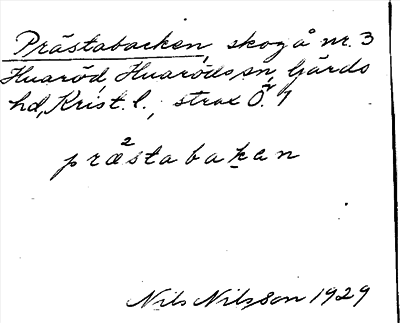 Prästabacken, skog å nr. 3
Huaröd, Huaröds sn, Gärds
hd, Krist. l., strax Ö. 1
præ²stabakan
Nils Nilsson 1929